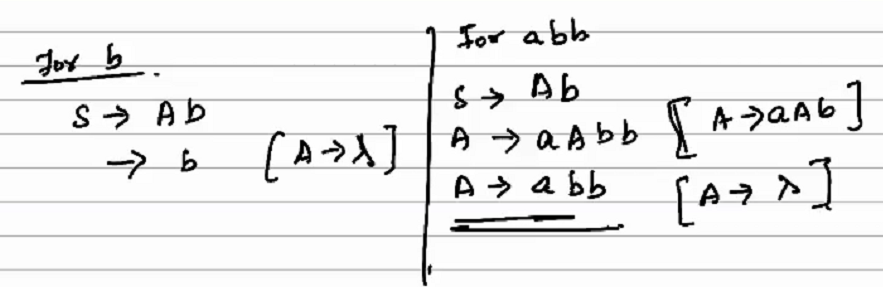 For b.
S → Ab
→ b [A → λ]
For abb
S → Ab
A → aAbb [A → aAb]
A → abb [A → λ]